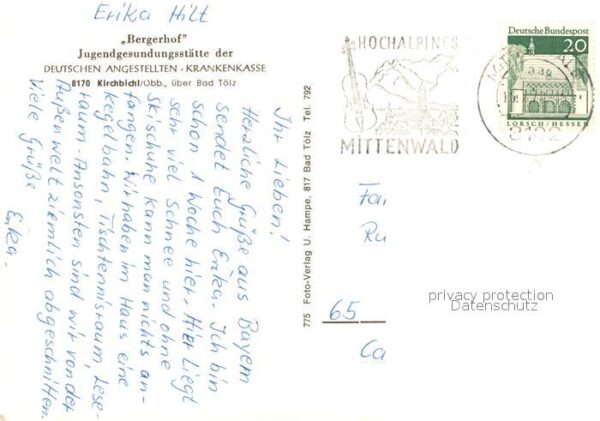 Erika Hilt
„Bergerhof"
Jugendgesundungsstätte der
DEUTSCHEN ANGESTELLTEN - KRANKENKASSE
8170 Kirchbichl/Obb., über Bad Tölz
Ihr Lieben!
Herzliche Grüße aus Bayern
sendet Euch Erika. Ich bin
schon 1 Woche hier. Hier liegt
sehr viel Schnee und ohne
Skischuhe kann man nichts an-
fangen. Wir haben im Haus eine
Kegelbahn, Tischtennisraum, Lese-
raum. Ansonsten sind wir von der
Außenwelt ziemlich abgeschnitten.
Viele Grüße
Erika.
775 Foto-Verlag U. Hampe, 817 Bad Tölz Tel. 792
HOCHALPINES
MITTENWALD
Deutsche Bundespost
20
LORSCH/HESSEN
8102
Fa
Ru
65
Ca
privacy protection
Datenschutz